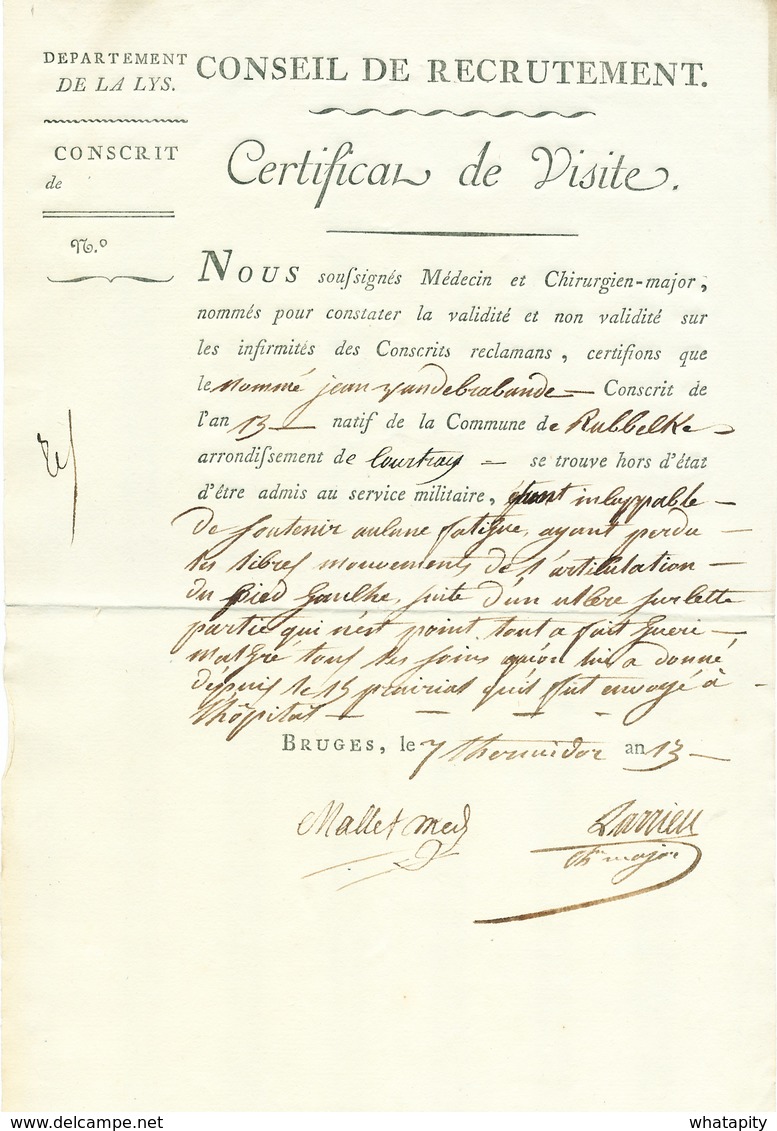 DEPARTEMENT
DE LA LYS.
CONSEIL DE RECRUTEMENT.
CONSCRIT
de
N.º
Certificat de Visite.
NOUS souſsignés Médecin et Chirurgien-major,
nommés pour constater la validité et non validité sur
les infirmités des Conscrits reclamans, certifions que
le nommé jean vandebrabande — Conscrit de
l'an 13 — natif de la Commune de Rubbelke
arrondiſsement de Courtray — se trouve hors d'état
d'être admis au service militaire, étant incappable —
de soutenir aucune fatigue, ayant perdu —
les libres mouvements de l'articulation —
du pied gauche, suite d'un ulcere sur cette
partie qui n'est point tout a fait gueri —
malgré tous les soins qu'on lui a donné
depuis le 15 prairial qu'il fut envoyé à —
l'hôpital — — — -
BRUGES, le 7 thermidor an 13 —
Mallet med
Larrieu
chr major
whatapity
whatapity